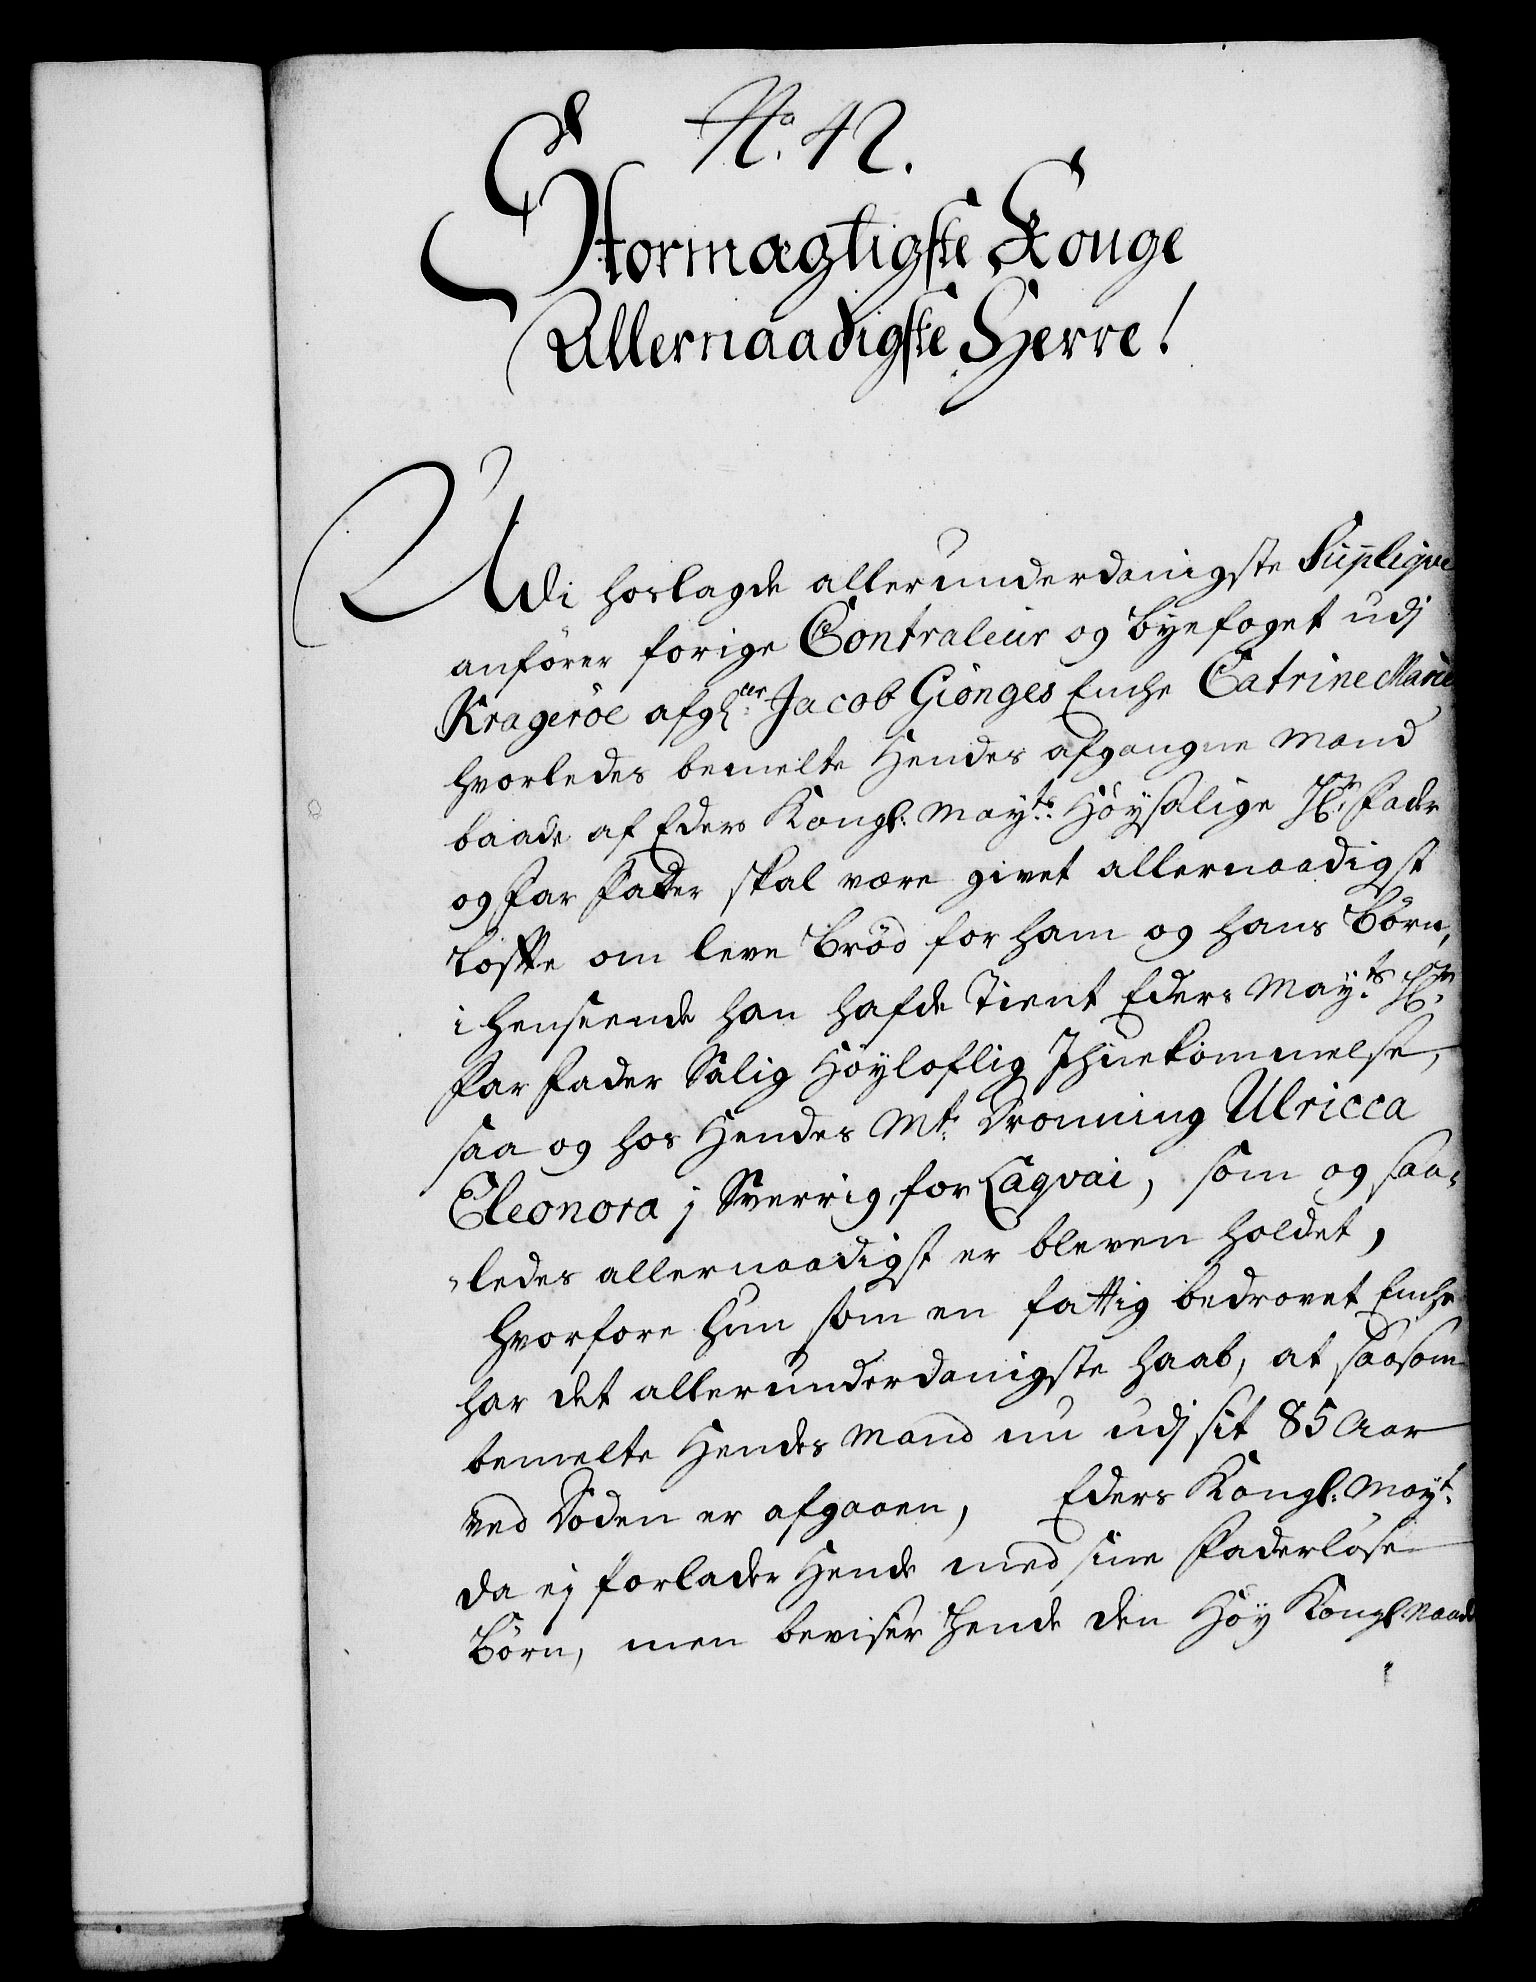 No. 42.
Stormægtigste Konge
Allernaadigste Herre!
Udi hoslagde allerunderdanigste Supliqve
anförer forige Contraleur og Byefoget udj
Krageröe afg: Jacob Giönges Enche Catrine Marie
hvorledes bemelte Hendes afgangne Mand
baade af Eders Kongl: Mayts: Höysalige Hr. Fader
og Far Fader skal være givet allernaadigst
Löffte om leve Bröd for ham og hans Börn,
i henseende han hafde tient Eders Mayts. Hr.
Far Fader Salig Höyloflig Ihuekommelse,
saa og hos Hendes Mt: Dronning Ulricca
Eleonora j Sverrig, for Laqvai, som og saa-
-ledes allernaadigst er bleven holdet,
hvorfore hun som en fattig bedrøvet Enche
har det allerunderdanigste haab, at saasom
bemelte Hendes Mand nu udj sit 85 Aar
ved Döden er afgaaen, Eders Kongl: Mayt:
da ej forlader Hende med sine Faderlöse
Börn, men beviser Hende den Höy Kongl Naade